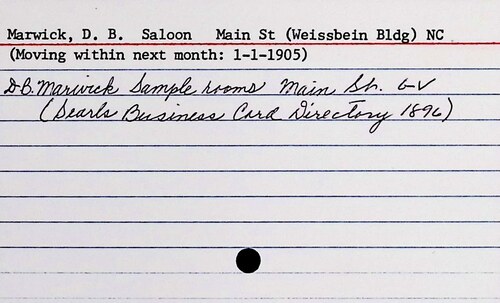 Marwick, D. B. Saloon Main St (Weissbein Bldg) NC
(Moving within next month: 1-1-1905)
D.B. Marwick Sample rooms Main St. GV
(Searls Business Card Directory 1896)